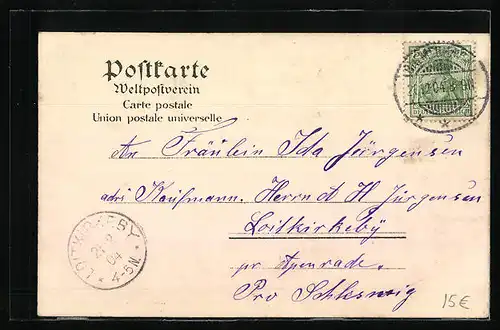 Postkarte
Weltpostverein
Carte postale
Union postale universelle
An Fräulein Ida Jürgensen
adrs Kaufmann. Herrn A H Jürgensen
Loitkirkeby
pr Apenrade.
Pro Schleswig
LOITKIRKEBY
04
4-5N.
15€